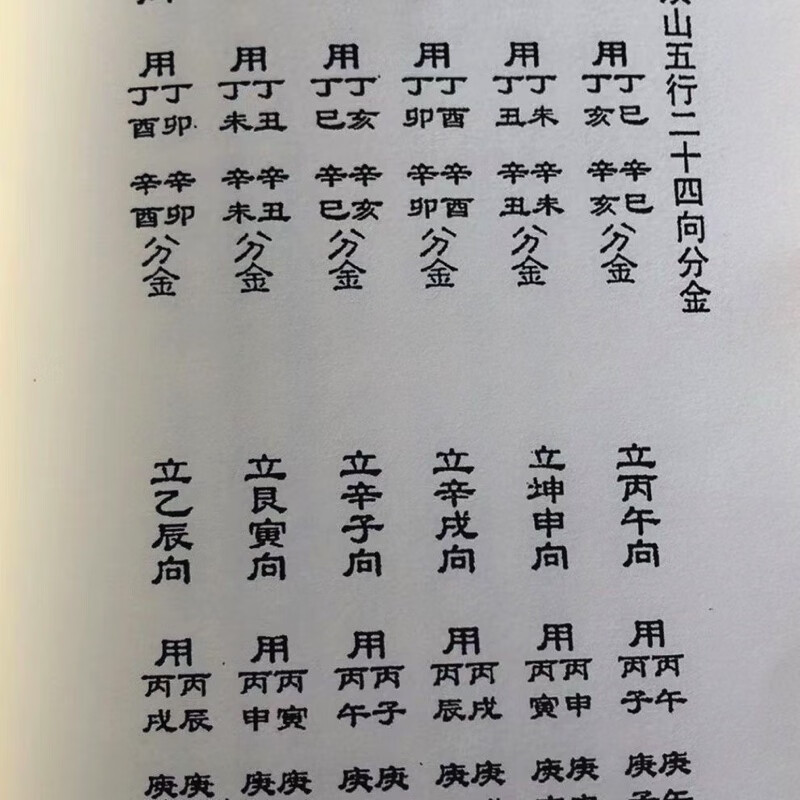 山五行二十四向分金
用丁巳丁亥辛巳辛亥分金
立丙午向用丙午丙子庚午庚
用丁未丁丑辛未辛丑分金
立坤申向用丙申丙寅庚庚
用丁酉丁卯辛酉辛卯分金
立辛戌向用丙戌丙辰庚庚
用丁亥丁巳辛亥辛巳分金
立辛子向用丙子丙午庚庚
用丁丑丁未辛丑辛未分金
立艮寅向用丙寅丙申庚庚
用丁卯丁酉辛卯辛酉分金
立乙辰向用丙辰丙戌庚庚